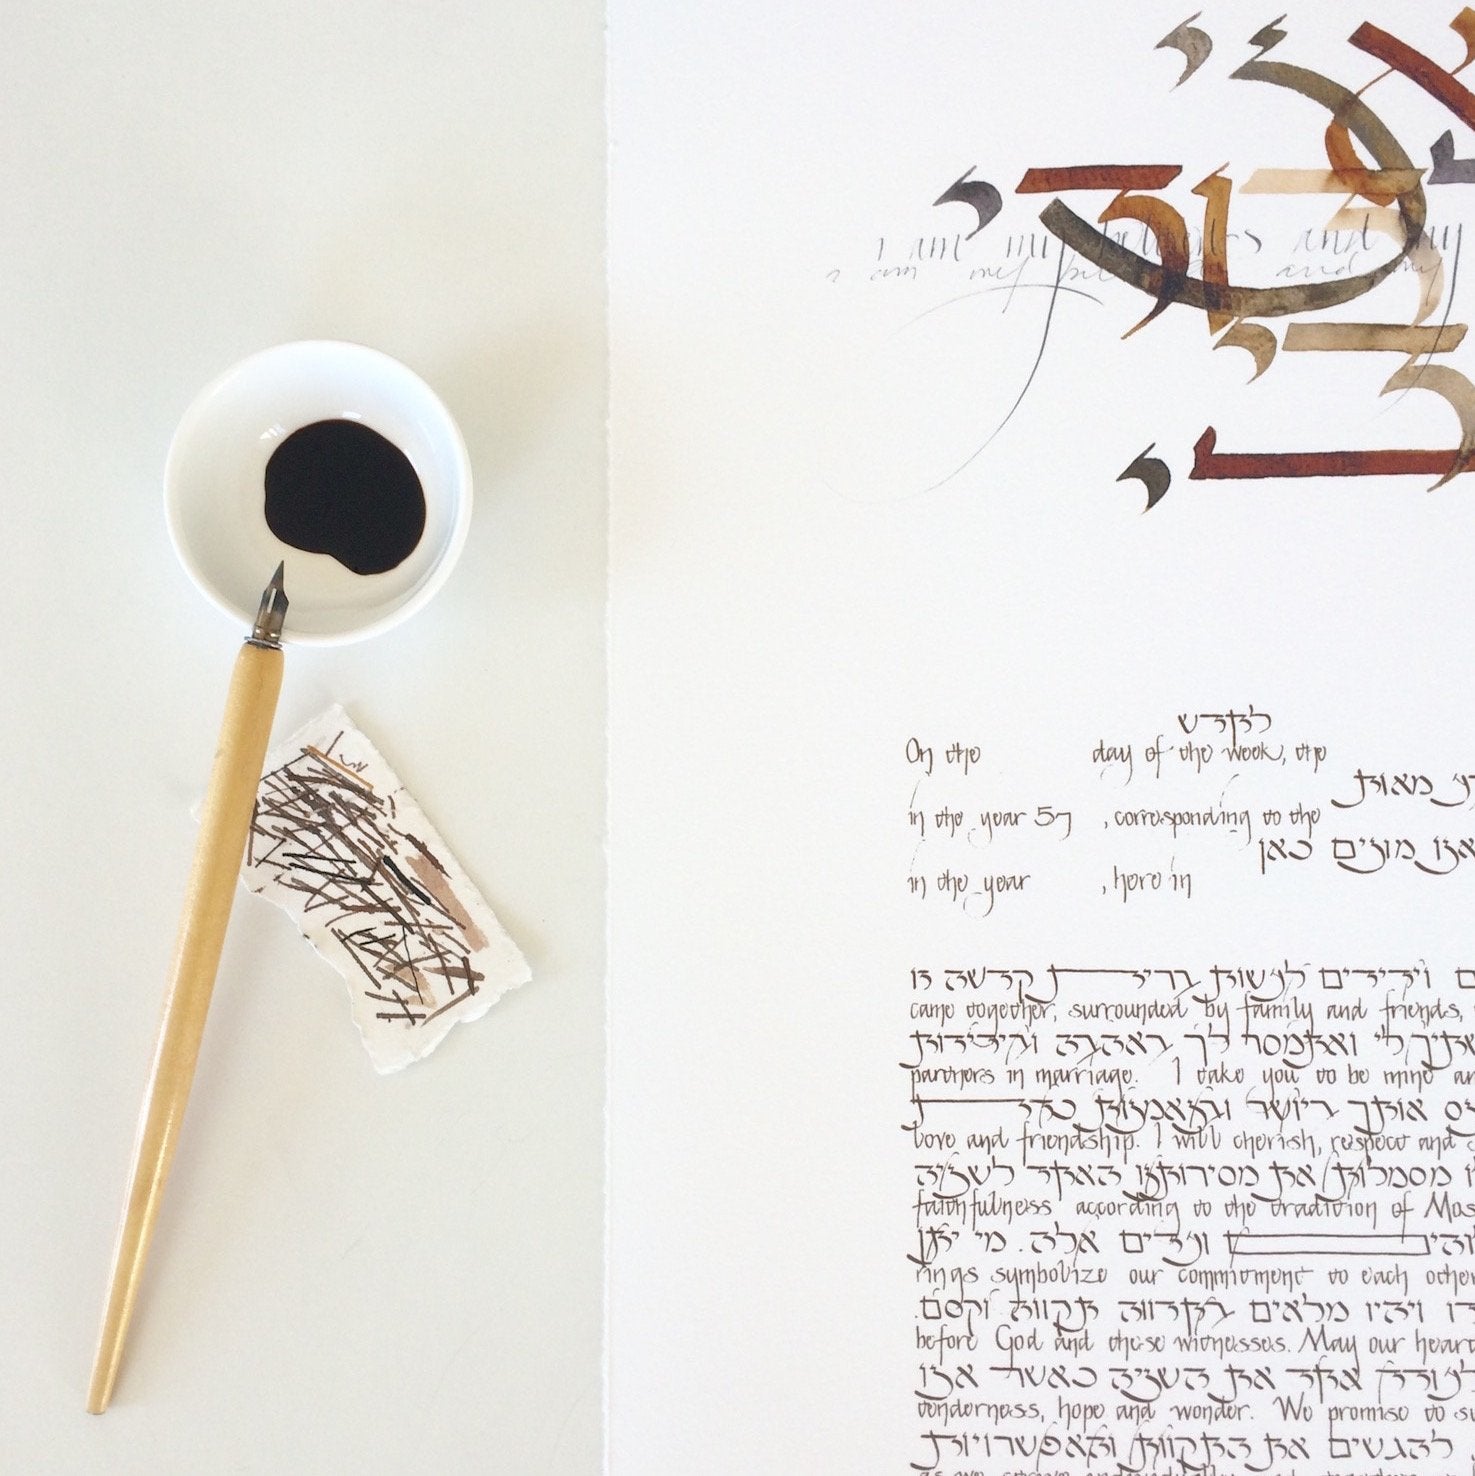 i am my beloved's and my
i am my and my
לחדש
On the day of the week, the
מאות
in the year 57 , corresponding to the
אנו מונים כאן
in the year , here in
וידידים לעשות ברית קדשה זו
came together, surrounded by family and friends,
ואתמסר לך באהבה ובידידות
partners in marriage. I take you to be mine
אותך ביושר ובאמנות כדת
love and friendship. I will cherish, respect and
מסמלות את מסירותנו האחד לשניה
faithfulness according to the tradition of
ועדים אלה. מי יתן
rings symbolize our commitment to each other
ויהיו מלאים בחדווה תקווה וקסם.
before God and these witnesses. May our
לעודד אחד את השניה כאשר אנו
tenderness, hope and wonder. We promise to
להגשים את התקוות והאפשרויות